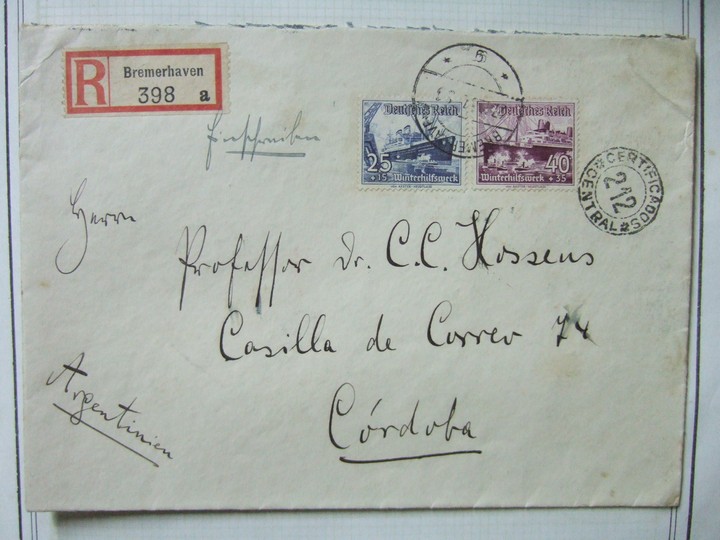 R
Bremerhaven
398 a
Einschreiben
Deutsches Reich
25
+15 Winterhilfswerk
Deutsches Reich
40
+35
Winterhilfswerk
CERTIFICADOS
CENTRAL
Herrn
Professor Dr. C.C. Hosseus
Casilla de Correo 74
Córdoba
Argentinien